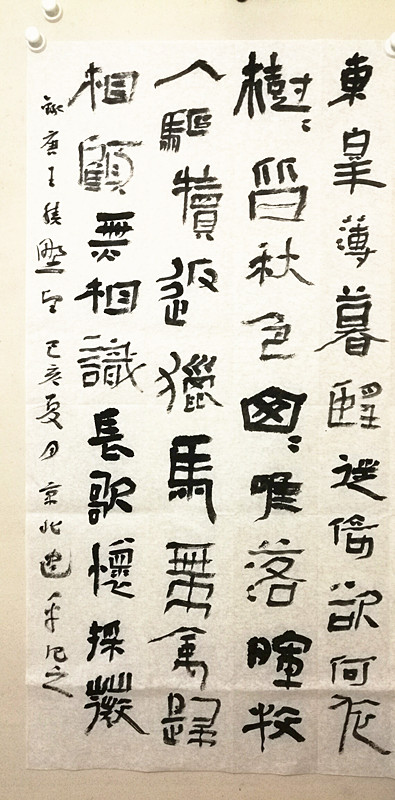 東皋薄暮朢徙倚欲何依
樹〻皆秋色山〻唯落暉牧
人驅犢返獵馬帶禽歸
相顧無相識長歌懷採薇
錄唐王績野望 己亥夏月京北 平記之